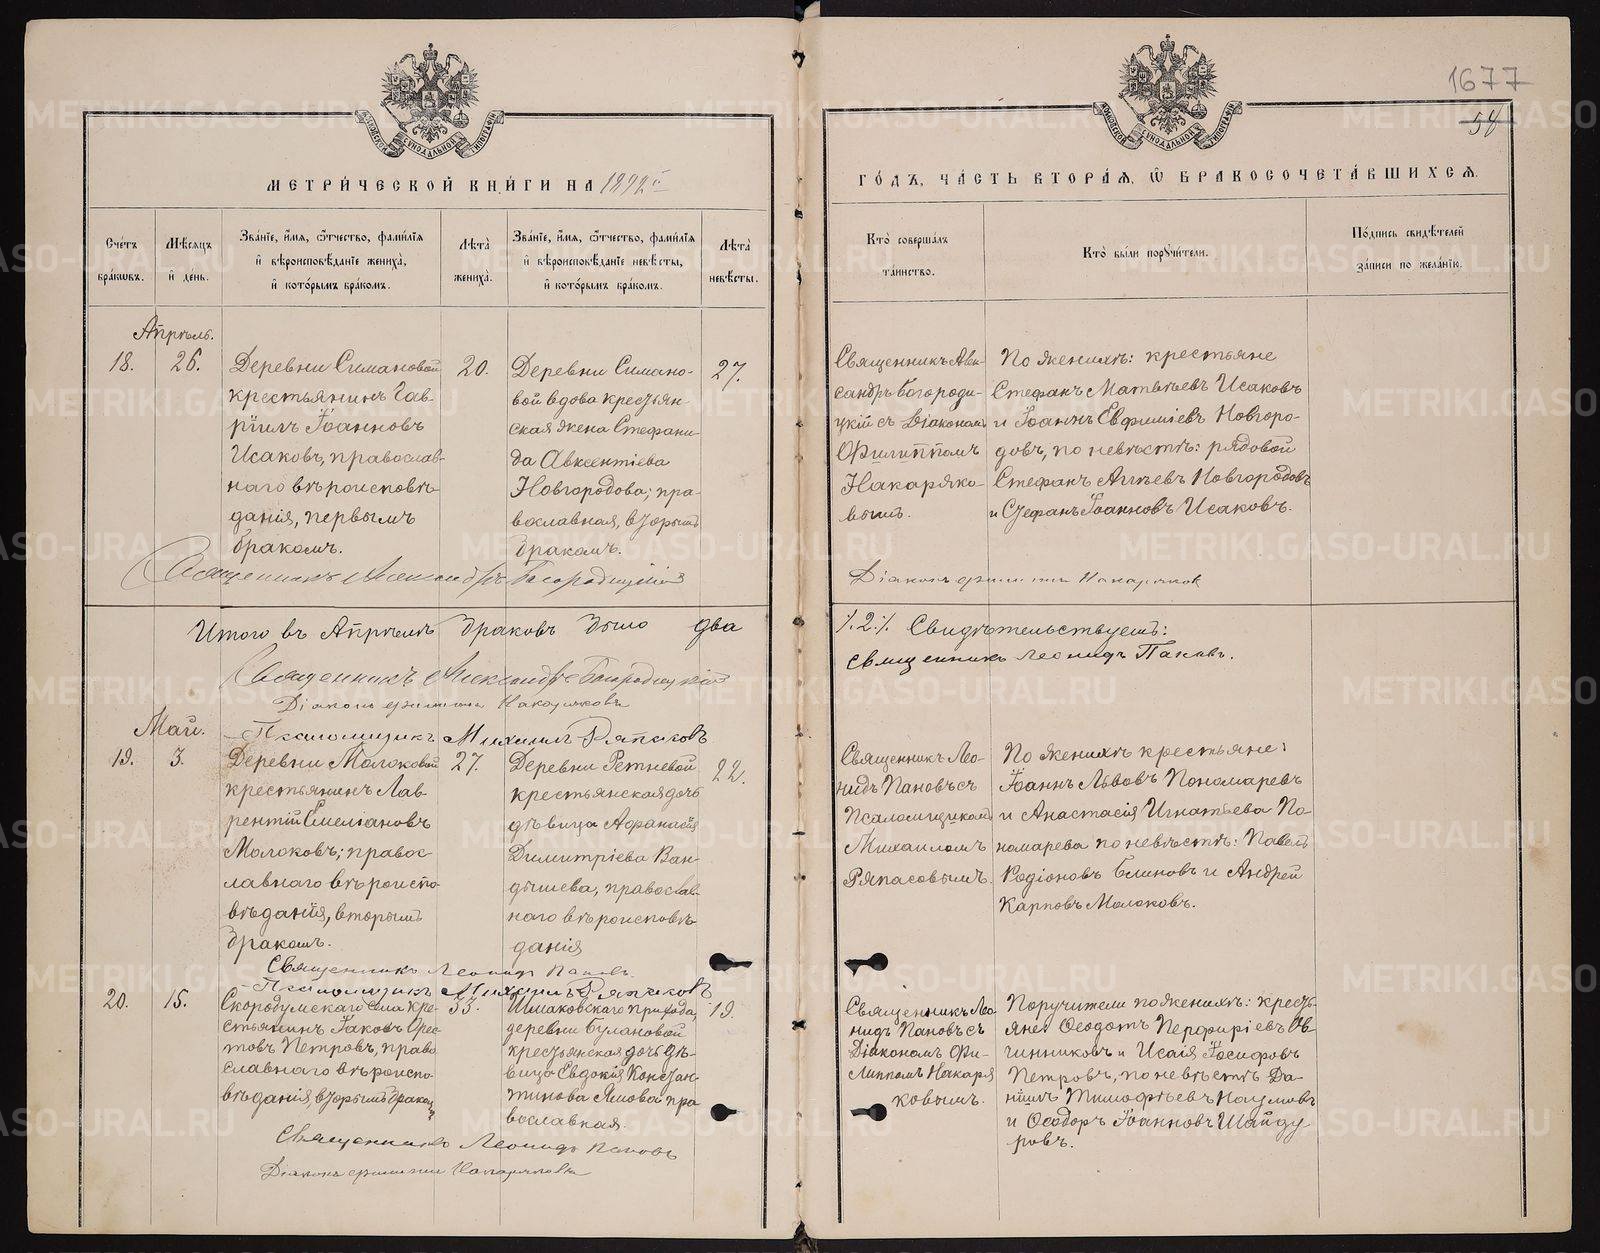 1677
54
МЕТРИ́ЧЕСКОЙ КНИ́ГИ НА 1892 г.
ГО́ДЪ, ЧА́СТЬ ВТОРА́Ѧ, Ѽ БРАКОСОЧЕТА́ВШИХСѦ.
Сче́тъ бра́кѡвъ.
Мѣ́сѧцъ и҆ де́нь.
Зва́нїе, и҆́мѧ, ѻ҆́тчество, фами́лїѧ и҆ вѣроисповѣ́данїе жениха̀, и҆ кото́рымъ бра́комъ.
Лѣта̀ жениха̀.
Зва́нїе, и҆́мѧ, ѻ҆́тчество, фами́лїѧ и҆ вѣроисповѣ́данїе невѣ́сты, и҆ кото́рымъ бра́комъ.
Лѣта̀ невѣ́сты.
Кто̀ соверша́лъ та́инство.
Кто̀ бы́ли порꙋчи́тели.
По́дпись свидѣ́телей за́писи по жела́нїю.
Апрѣль.
18.
26.
Деревни Симановой
крестьянинъ Гав-
рїилъ Іоанновъ
Исаковъ, православ-
наго вѣроисповѣ-
данія, первымъ
бракомъ.
20.
Деревни Симано-
вой вдова крестьян
ская жена Стефани-
да Авксентіева
Новгородова; пра-
вославная, вторымъ
бракомъ.
27.
Священникъ Алек-
сандръ Богороди-
цкій съ Діакономъ
Филиппомъ
Накаряко-
вымъ.
По женихѣ: крестьяне
Стефанъ Матвѣевъ Исаковъ
и Іоаннъ Евфиміевъ Новгоро-
довъ, по невѣстѣ: рядовой
Стефанъ Новгородовъ
и Стефанъ Іоанновъ Исаковъ.
Священникъ Александръ Богородицкій
Діаконъ Филиппъ Накаряков
Итого въ Апрѣлѣ браковъ было два
/.2./. Свидѣтельствуемъ:
Священникъ Александръ Богородицкій
священникъ Леонидъ Пановъ.
Діаконъ Филиппъ Накаряковъ
Псаломщикъ Михаилъ Ряпасовъ
Май.
19.
3.
Деревни Молоковой
крестьянинъ Лав-
рентій Емельяновъ
Молоковъ; правос-
лавнаго вѣроиспо-
вѣданія, вторымъ
бракомъ.
27.
Деревни Ретневой
крестьянская дочь
дѣвица Афанасія
Димитріева Ван-
дышева, православ-
наго вѣроисповѣ-
данія
22.
Священникъ Лео-
нидъ Пановъ съ
Псаломщикомъ
Михаиломъ
Ряпасовымъ.
По женихѣ крестьяне:
Іоаннъ Львовъ Пономаревъ
и Анастасія Игнатьева По-
номарева по невѣстѣ: Павелъ
Родіоновъ Блиновъ и Андрей
Карповъ Молоковъ.
Священникъ Леонидъ Пановъ.
Псаломщикъ Михаилъ Ряпасовъ
20.
15.
Скородумскаго села кре-
стьянинъ Іаковъ Орес-
товъ Петровъ, право
славнаго вѣроиспо-
вѣданія вторымъ бракомъ
33.
Шмаковскаго прихода,
деревни Булановой
крестьянская дочь дѣ-
вица Евдокія Констан-
тинова Ямова пра
вославная.
19.
Священникъ Лео
нидъ Пановъ съ
Діакономъ Фи-
липпомъ Накаря
ковымъ.
Поручители по женихѣ: кресть-
яне: Ѳеодотъ Перфиріевъ Ов-
чинниковъ и Исаія Іосифовъ
Петровъ, по невѣстѣ Да-
ніилъ Тимофѣевъ Наумовъ
и Ѳеодоръ Іоанновъ Шайду
ровъ.
Священникъ Леонидъ Пановъ
Діаконъ Филиппъ Накаряковъ